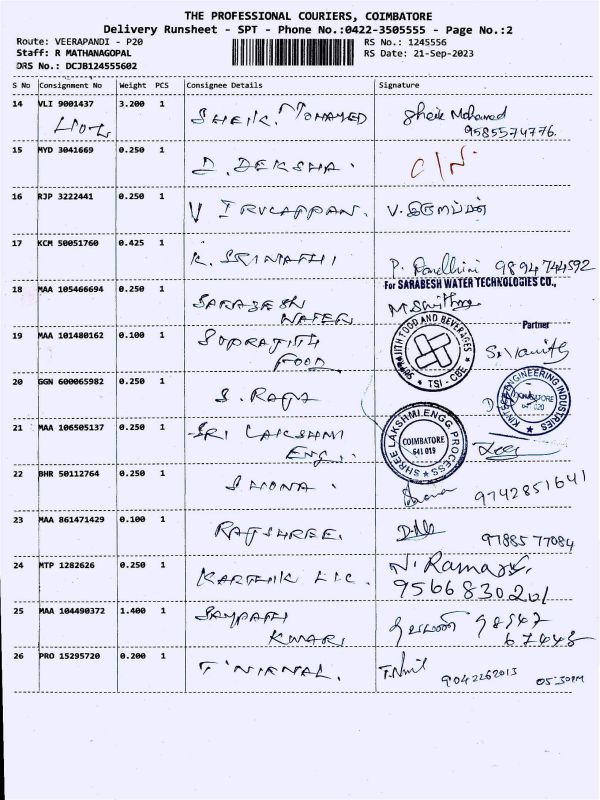 THE PROFESSIONAL COURIERS, COIMBATORE
Delivery Runsheet - SPT - Phone No.:0422-3505555 - Page No.:2
Route: VEERAPANDI - P20 RS No.: 1245556
Staff: R MATHANAGOPAL RS Date: 21-Sep-2023
DRS No.: DCJB124555602
S No Consignment No Weight PCS Consignee Details Signature
14 VLI 9001437 3.200 1 SHEIK. MOHAMED Sheik Mohamed
9585574776.
15 MYD 3041669 0.250 1 D. DEKSHA. C/N
16 RJP 3222441 0.250 1 V IRULAPPAN. V. இருளப்பன்
17 KCM 50051760 0.425 1 K. SRIMATHI 9894744592
For SARABESH WATER TECHNOLOGIES CO.,
18 MAA 105466694 0.250 1 SARABESH
WATER
Partner
19 MAA 101480162 0.100 1 SUPRAJITH
FOOD
SUPRAJITH FOOD AND BEVERAGES
* TSI - CBE *
20 GGN 600065982 0.250 1 S. RAJA
ENGINEERING INDUSTRIES
21 MAA 106505137 0.250 1 SRI LAKSHMI
ENG.
SHREE LAKSHMI ENGG PROCESS
COIMBATORE
641 019
22 BHR 50112764 0.250 1 SHONA. 9742851641
23 MAA 861471429 0.100 1 RAJSHREE. 9788577084
24 MTP 1282626 0.250 1 KARTHIK LIC. N. Ramar
9566830201
25 MAA 104490372 1.400 1 SAMPATH
KUMARI 98947
67448
26 PRO 15295720 0.200 1 T NIRMAL. T. Nirmal 9042262013 05:30PM